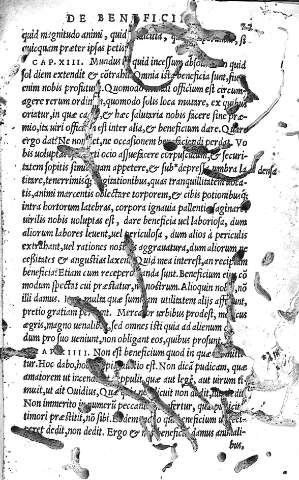 DE BENEFICII
quid magnitudo animi, quid
cuicquam præter ipsas petis
CAP. XIII. Mundus in quid incessum absol
sol diem extendit & cōtrahit omnia ista beneficia sunt, fiu
enim nobis profutura. Quomodo officium est circum-
agere rerum ordinem, quomodo solis loca mutare, ex quibus
oriatur, in quæ cadat, & hæc salutaria nobis facere sine præ-
mio, ita viri officium est inter alia, & beneficium dare. Quare
ergo dat? Ne non det, ne occasionem benefaciendi perdat. Vo
bis voluptas est inerti otio assuefacere corpusculum, & securi
tatem sopitis simillimam appetere, & sub densa umbra la
titare, tenerrimisque cogitationibus, quas tranquillitatem voca
tis, animi marcentis oblectare torporem, & cibis potionibusque
intra hortorum latebras, corpora ignauia pallentia saginare:
uirilis nobis uoluptas est, dare beneficia uel laboriosa, dum
aliorum labores leuent, uel periculosa, dum alios à periculis
extrahant, uel rationes nostras aggrauatura, dum aliorum ne
cessitates & angustias laxent. Quid mea interest, an recipiam
beneficia? Etiam cum recepero danda sunt. Beneficium eius cō
modum spectat cui præstatur, non nostrum. Alioquin nobis, nō
illi damus. Itaque multa quæ summam utilitatem alijs afferunt,
pretio gratiam perdunt. Mercator urbibus prodest, medicus
ægris, mango uenalibus: sed omnes isti quia ad alienum com
dum pro suo ueniunt, non obligant eos, quibus prosunt.
CAP. XIIII. Non est beneficium quod in quæstum mitti
tur. Hoc dabo, hoc recipiam, auctio est. Non dicā pudicam, quæ
amatorem ut incenderet repulit, quæ aut legē, aut uirum ti
muit, ut ait Ouidius, Quæ quia non licuit non dedit, illa dedit.
Non immerito in numerū peccantium refertur, quæ pudicitiā
timori præstitit, nō sibi. Eodem modo
ceret, non dedit. Ergo & nos beneficia damus animali-
bus,